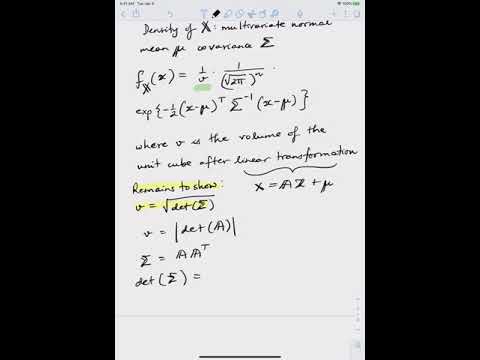 Density of 𝕏: multivariate normal
mean μ covariance Σ
f_𝕏(x) = 1/v · 1/(√2π)ⁿ ·
exp{-½(x-μ)ᵀ Σ⁻¹ (x-μ)}
where v is the volume of the
unit cube after linear transformation
Remains to show:
𝕏 = 𝔸ℤ + μ
v = √det(Σ)
v = |det(𝔸)|
Σ = 𝔸𝔸ᵀ
det(Σ) =